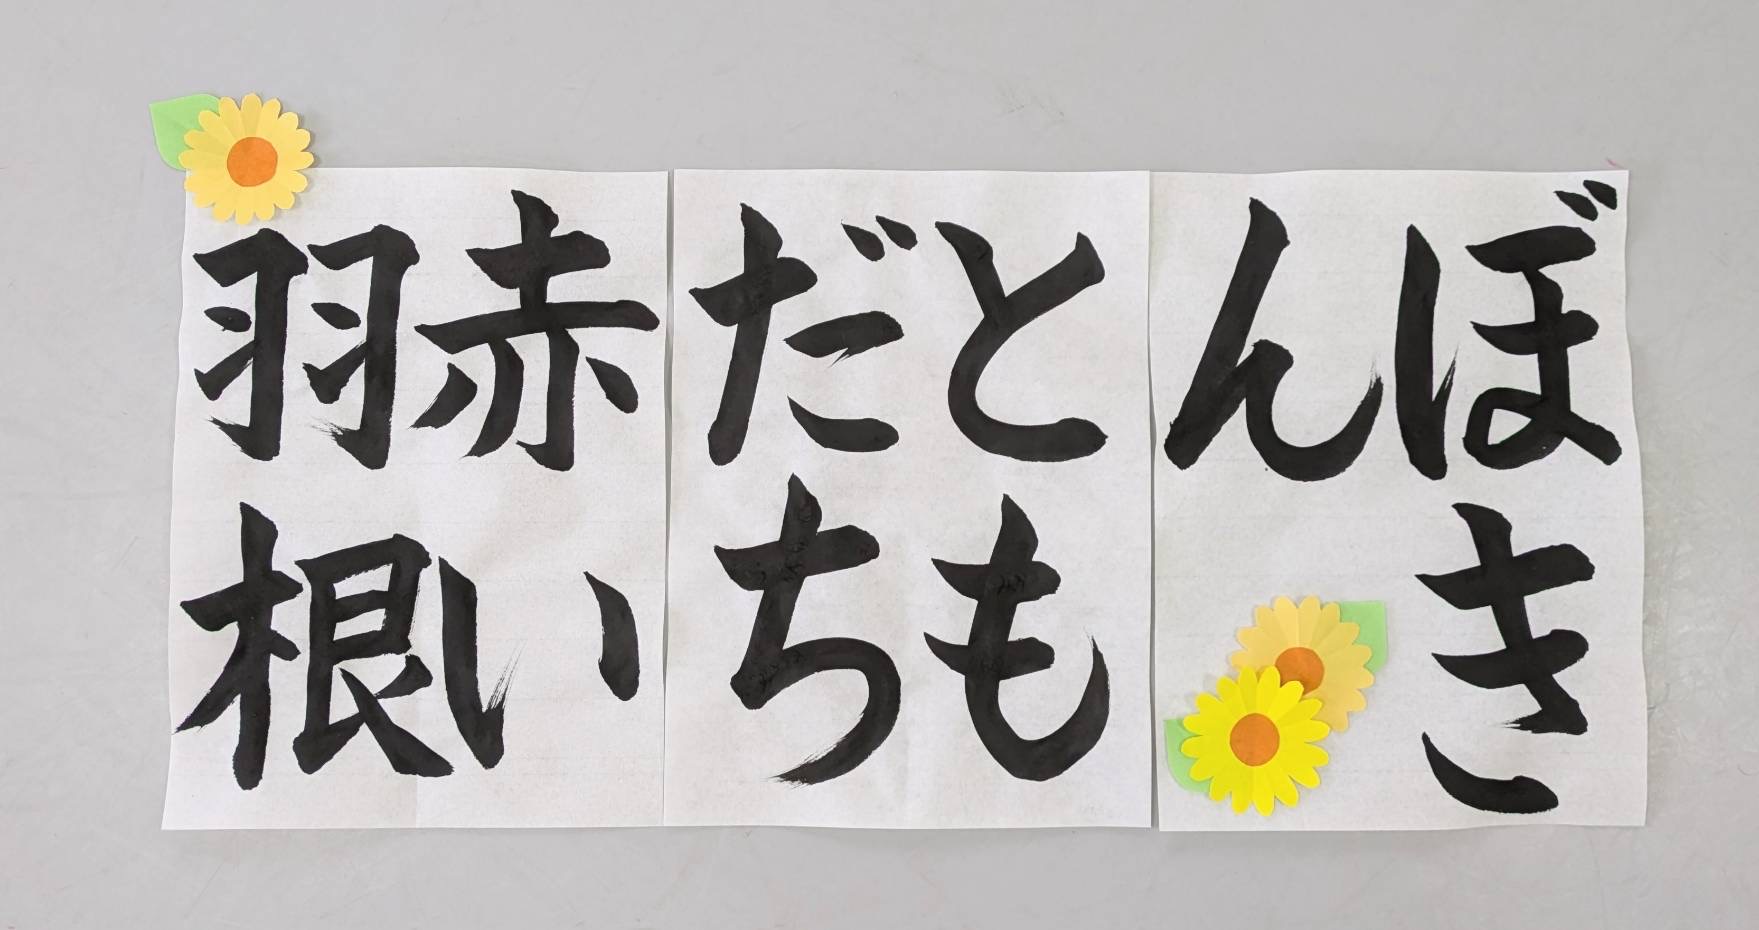 赤い
羽根
とも
だち
ぼき
ん